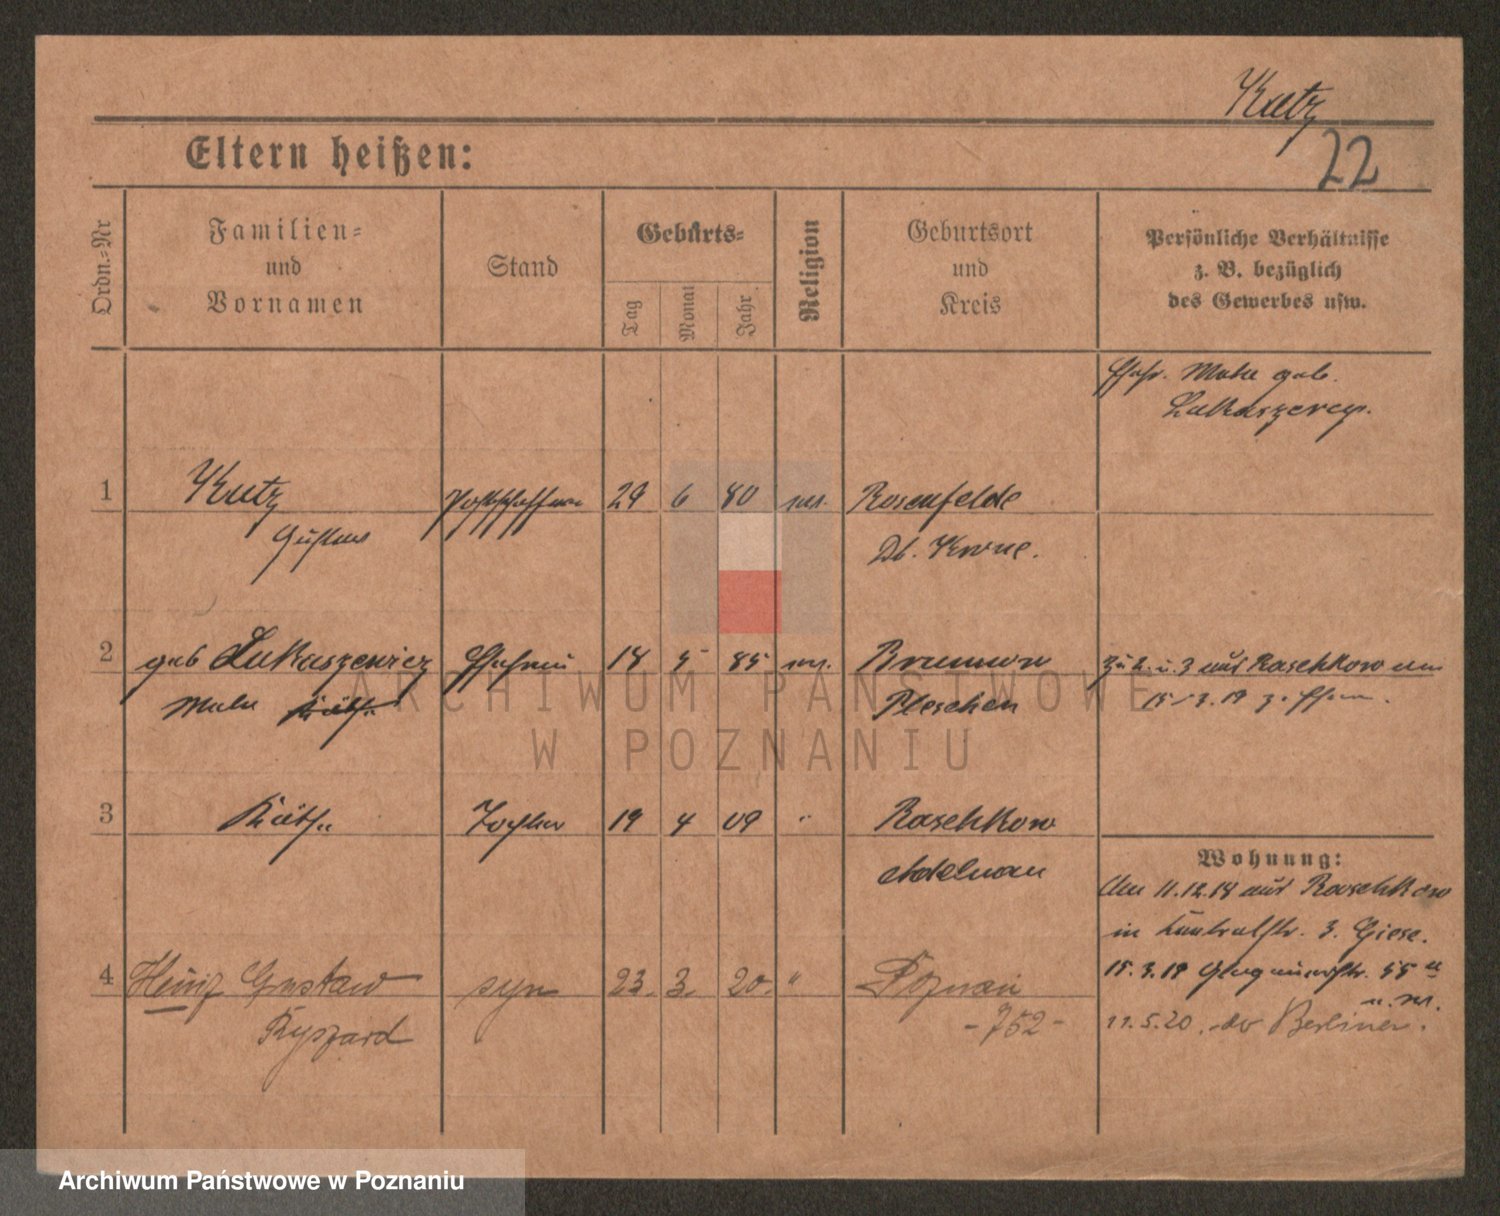 Kutz
22
Eltern heißen:
Ordn.-Nr
Familien- und Vornamen
Stand
Geburts-
Tag
Monat
Jahr
Religion
Geburtsort und Kreis
Persönliche Verhältnisse z. B. bezüglich des Gewerbes usw.
Ehefr. geb.
1 Kutz 29 6 80 Rosenfelde
Gustav Dt. Krone.
2 geb Lukaszewicz Ehefrau 18 5 85 Brunnow
Pleschen
Zu 2. u. 3 aus Raschkow am
15/3.19
3 Käthe Tochter 19 4 09 " Raschkow
Adelnau
Wohnung:
Am 11.12.18 aus Raschkow
in 3. Giese.
15.3.19 55
4 Heinz Gustaw syn 23. 3. 20. " Poznań
Ryszard -752-
11.5.20. do Berliner.
ARCHIWUM PAŃSTWOWE
W POZNANIU
Archiwum Państwowe w Poznaniu